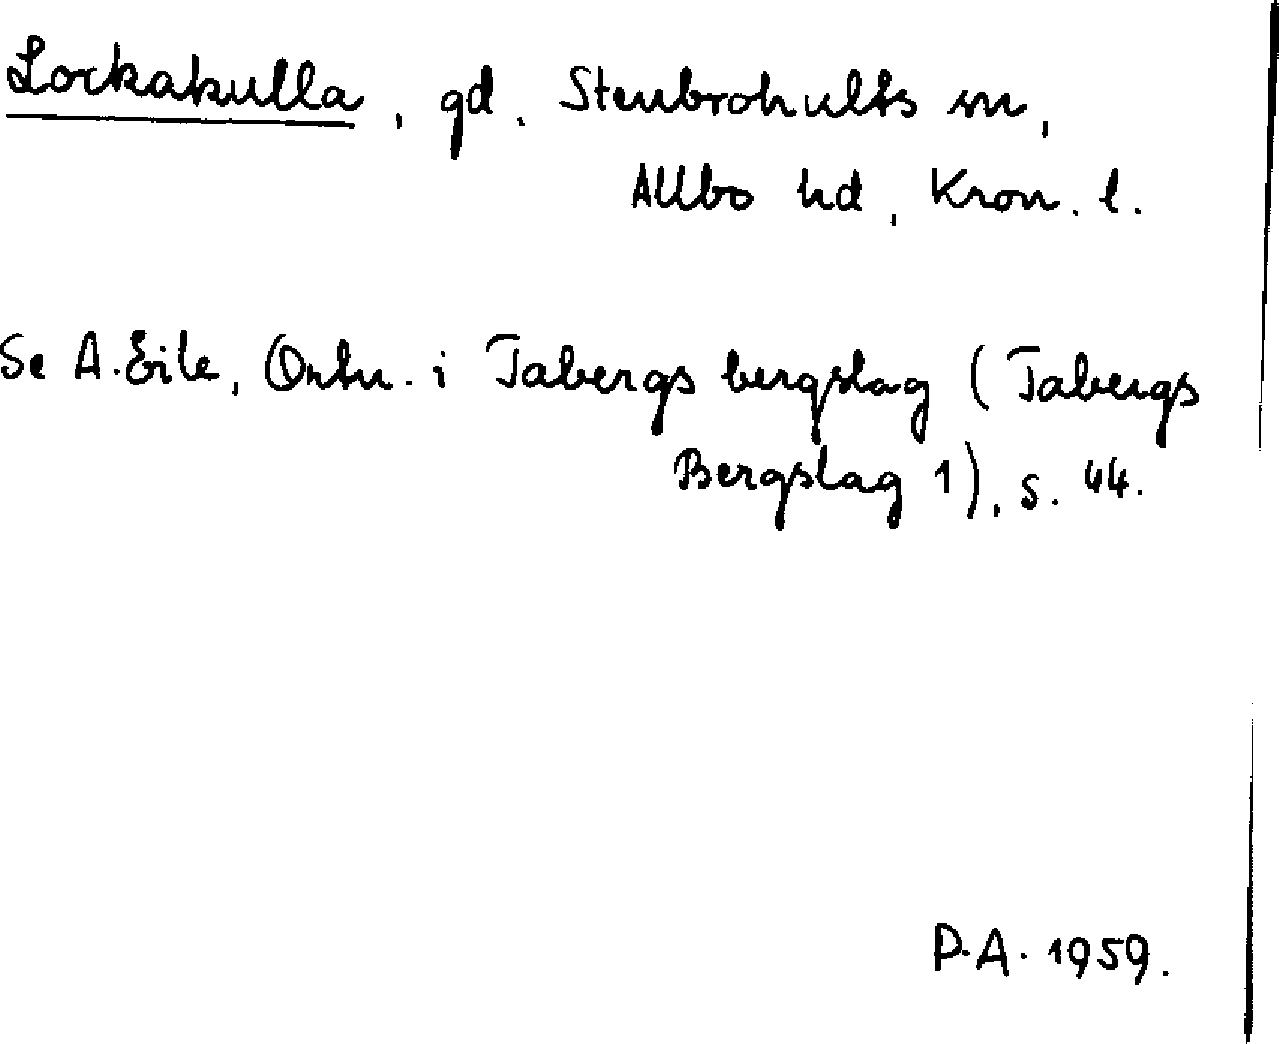 Lockakulla, gd. Stenbrohults sn,
Allbo hd, Kron. l.
Se A. Eile, Ortn. i Tabergs bergslag (Tabergs
Bergslag 1), s. 44.
P.A. 1959.